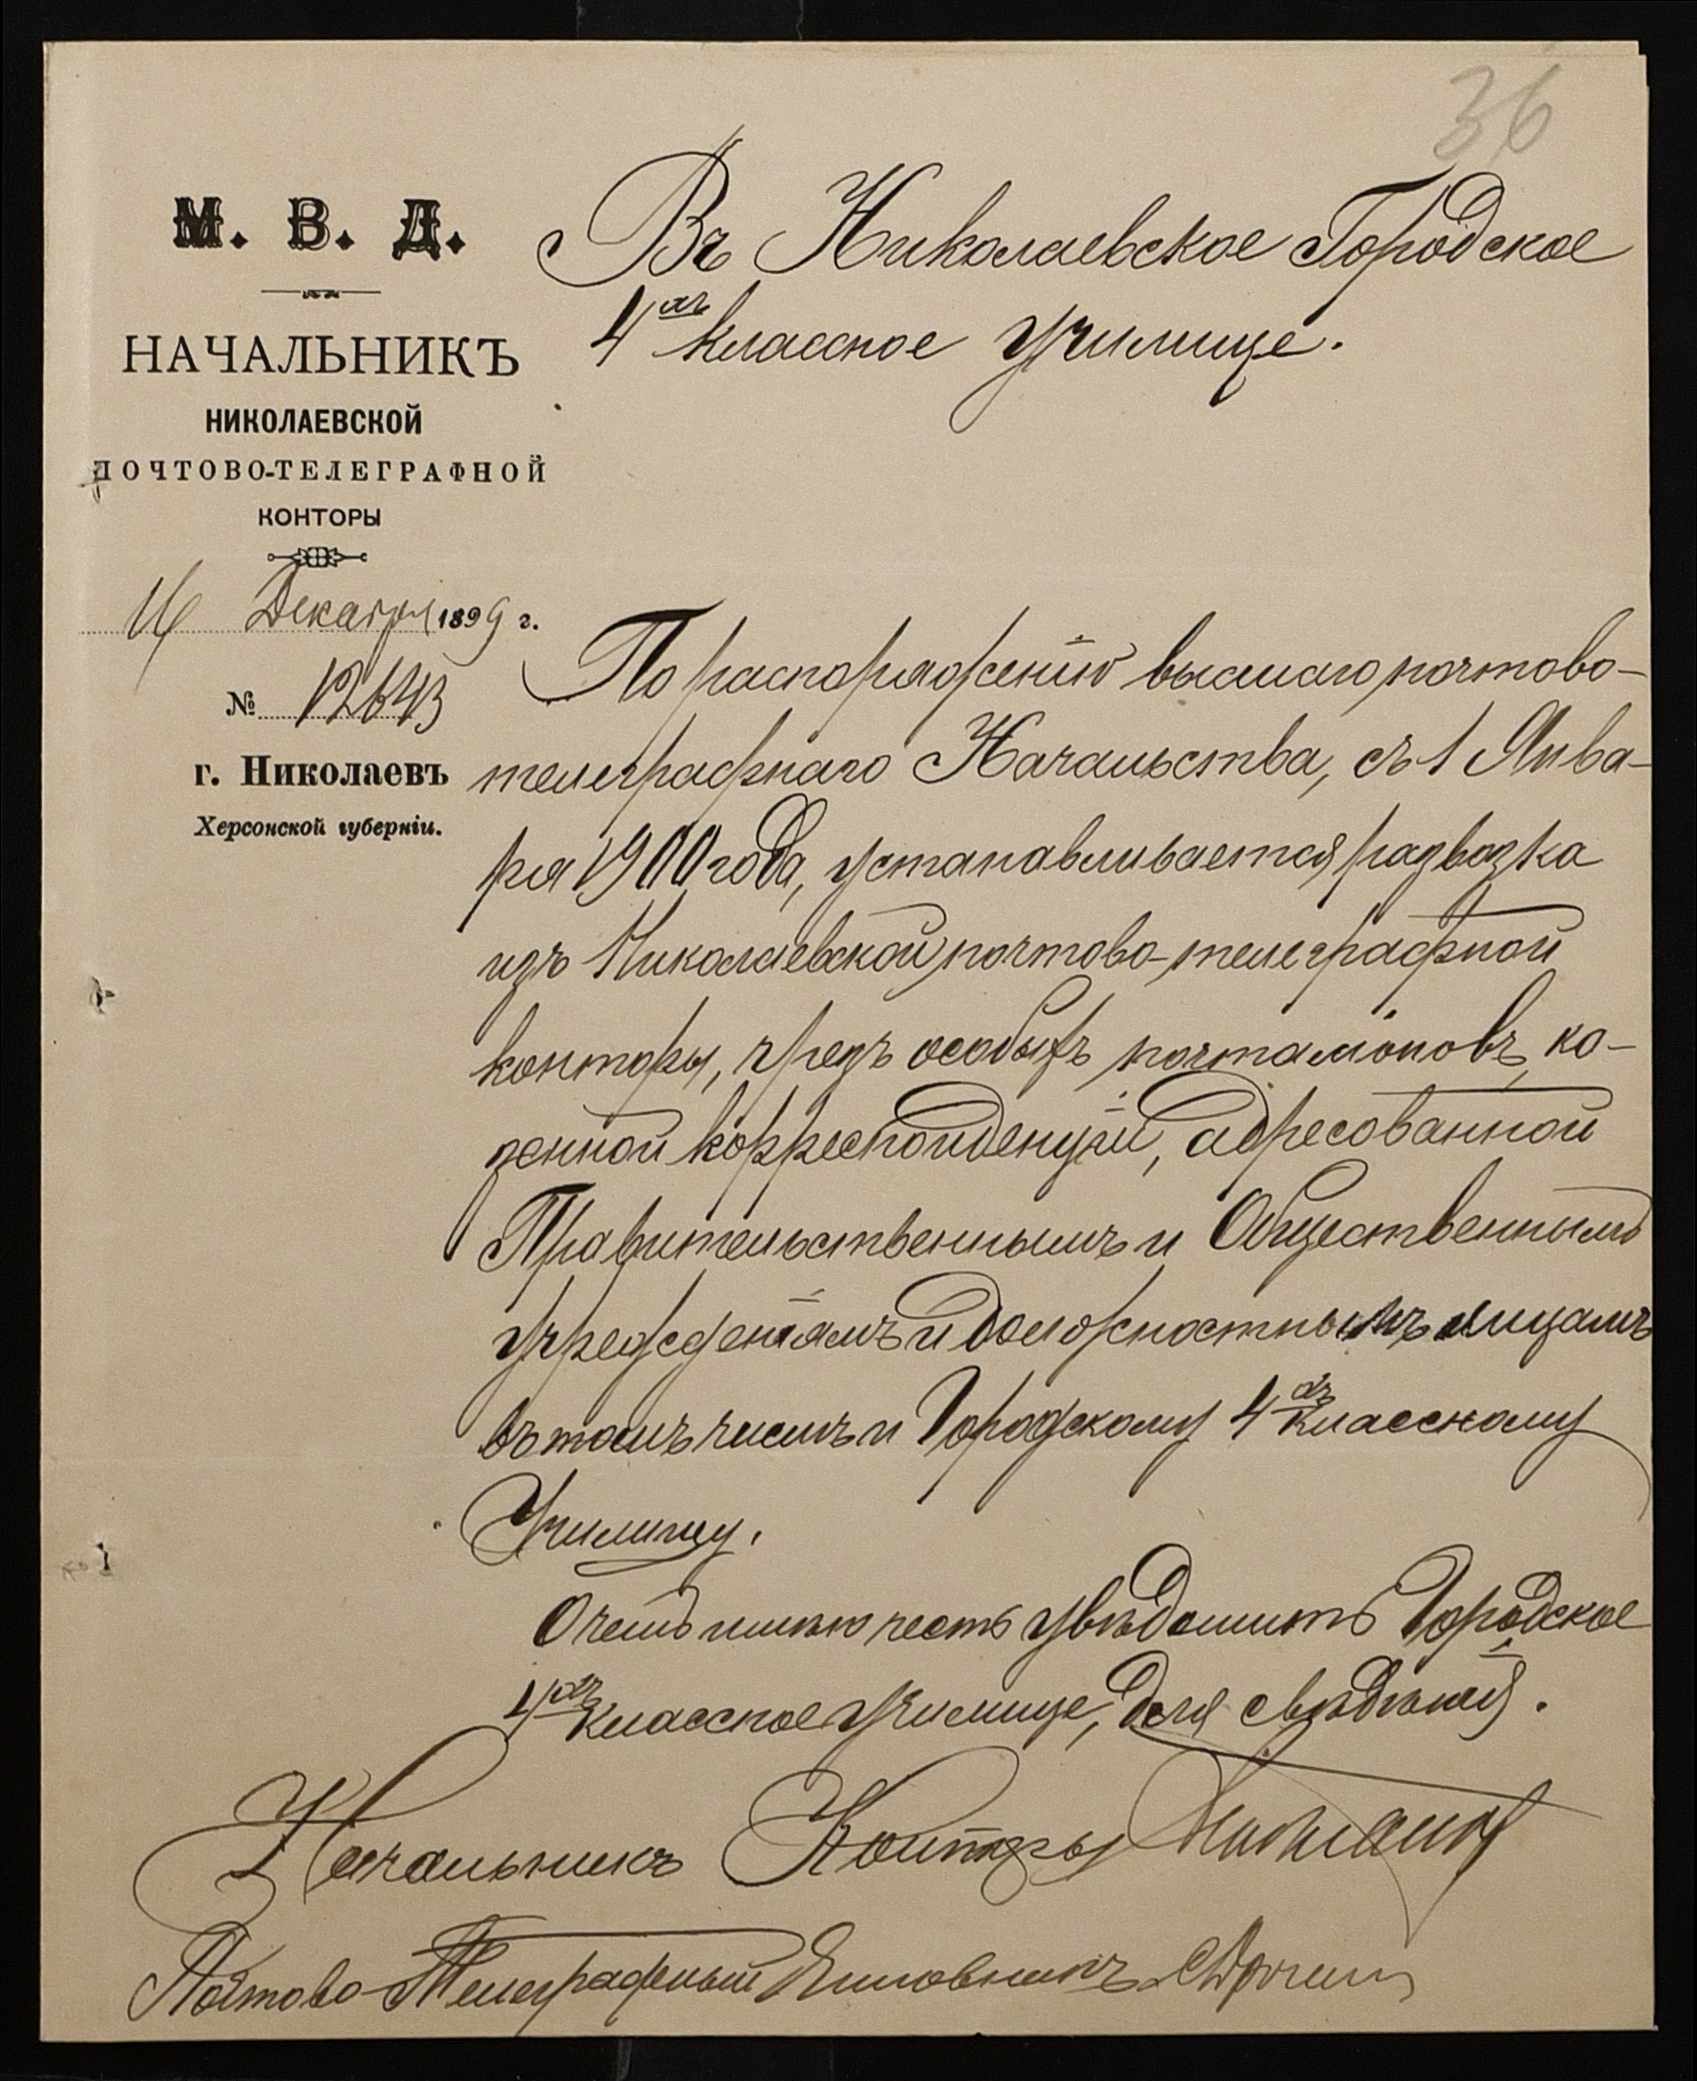 36
М. В. Д.
НАЧАЛЬНИКЪ
НИКОЛАЕВСКОЙ
ПОЧТОВО-ТЕЛЕГРАФНОЙ
КОНТОРЫ
Декабря 1899 г.
№ 12643
г. Николаевъ
Херсонской губерніи.
Въ Николаевское Городское
4хъ классное училище.
По распоряженію высшаго почтово-
телеграфнаго Начальства, съ 1 Янва-
ря 1900 года, устанавливается развозка
изъ Николаевской почтово-телеграфной
конторы, чрезъ особыхъ почталіоновъ, ка-
зенной корреспонденціи, адресованной
Правительственнымъ и Общественнымъ
учрежденіямъ и должностнымъ лицамъ
въ томъ числѣ и Городскому 4хъ классному
Училищу.
О чемъ имѣю честь увѣдомить Городское
4хъ классное училище, для свѣдѣній.
Начальникъ Конторы
Почтово-Телеграфный Чиновникъ